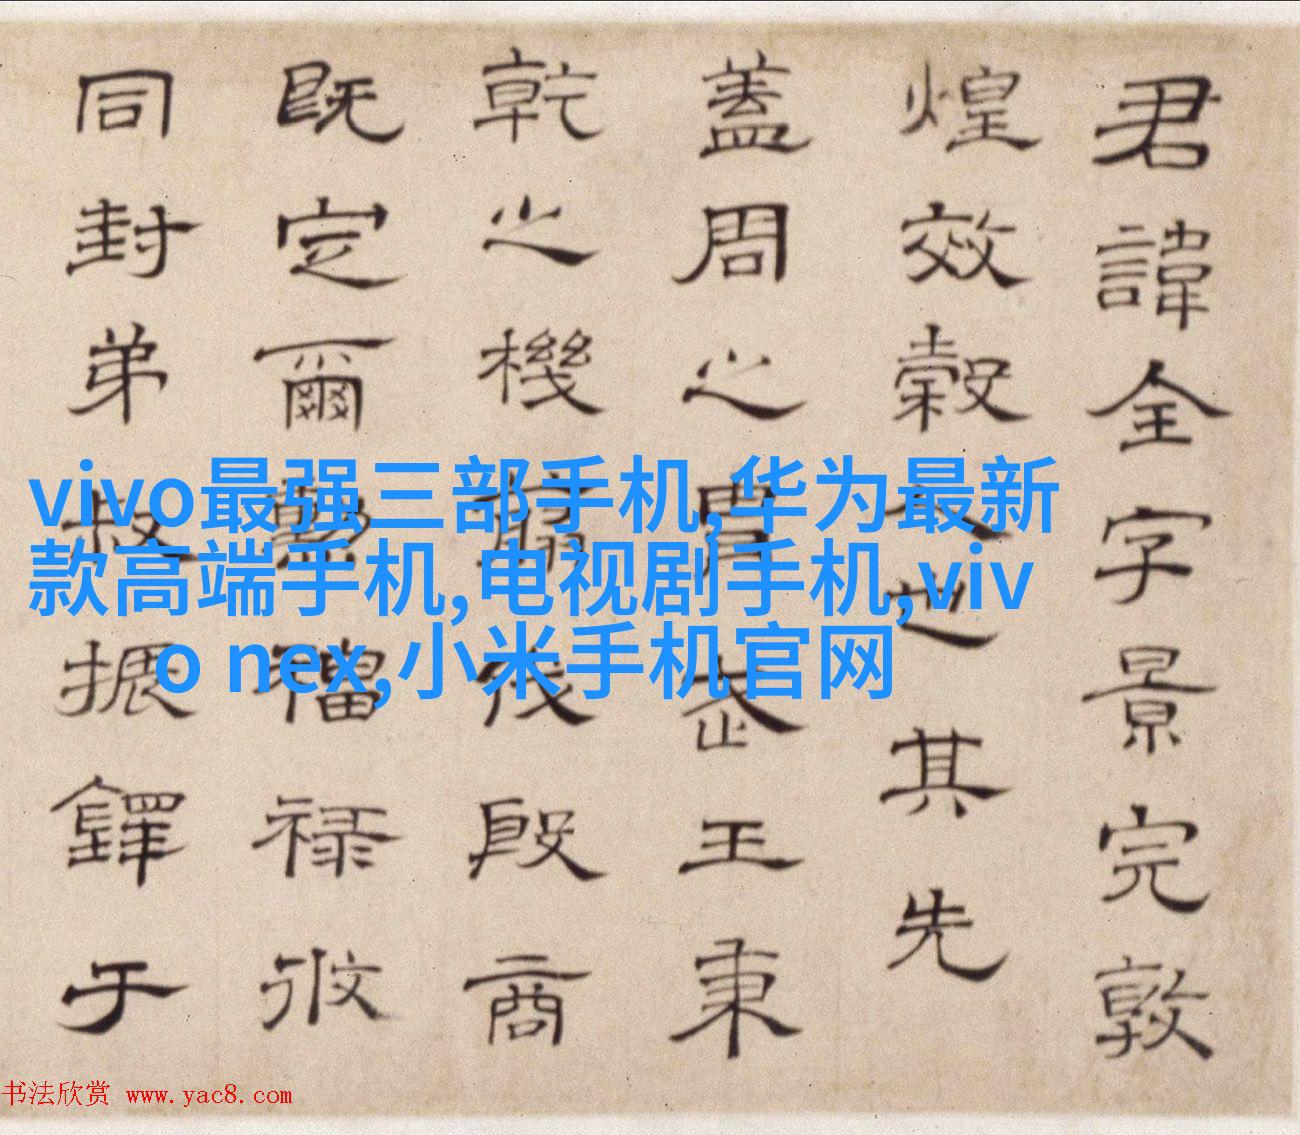 君諱全字景完敦
煌效穀人也其先
蓋周之胄武王秉
乾之機翦伐殷商
既定爾勳福祿攸
同封弟叔振鐸于
vivo最强三部手机,华为最新
款高端手机,电视剧手机,viv
o nex,小米手机官网
书法欣赏 www.yac8.com